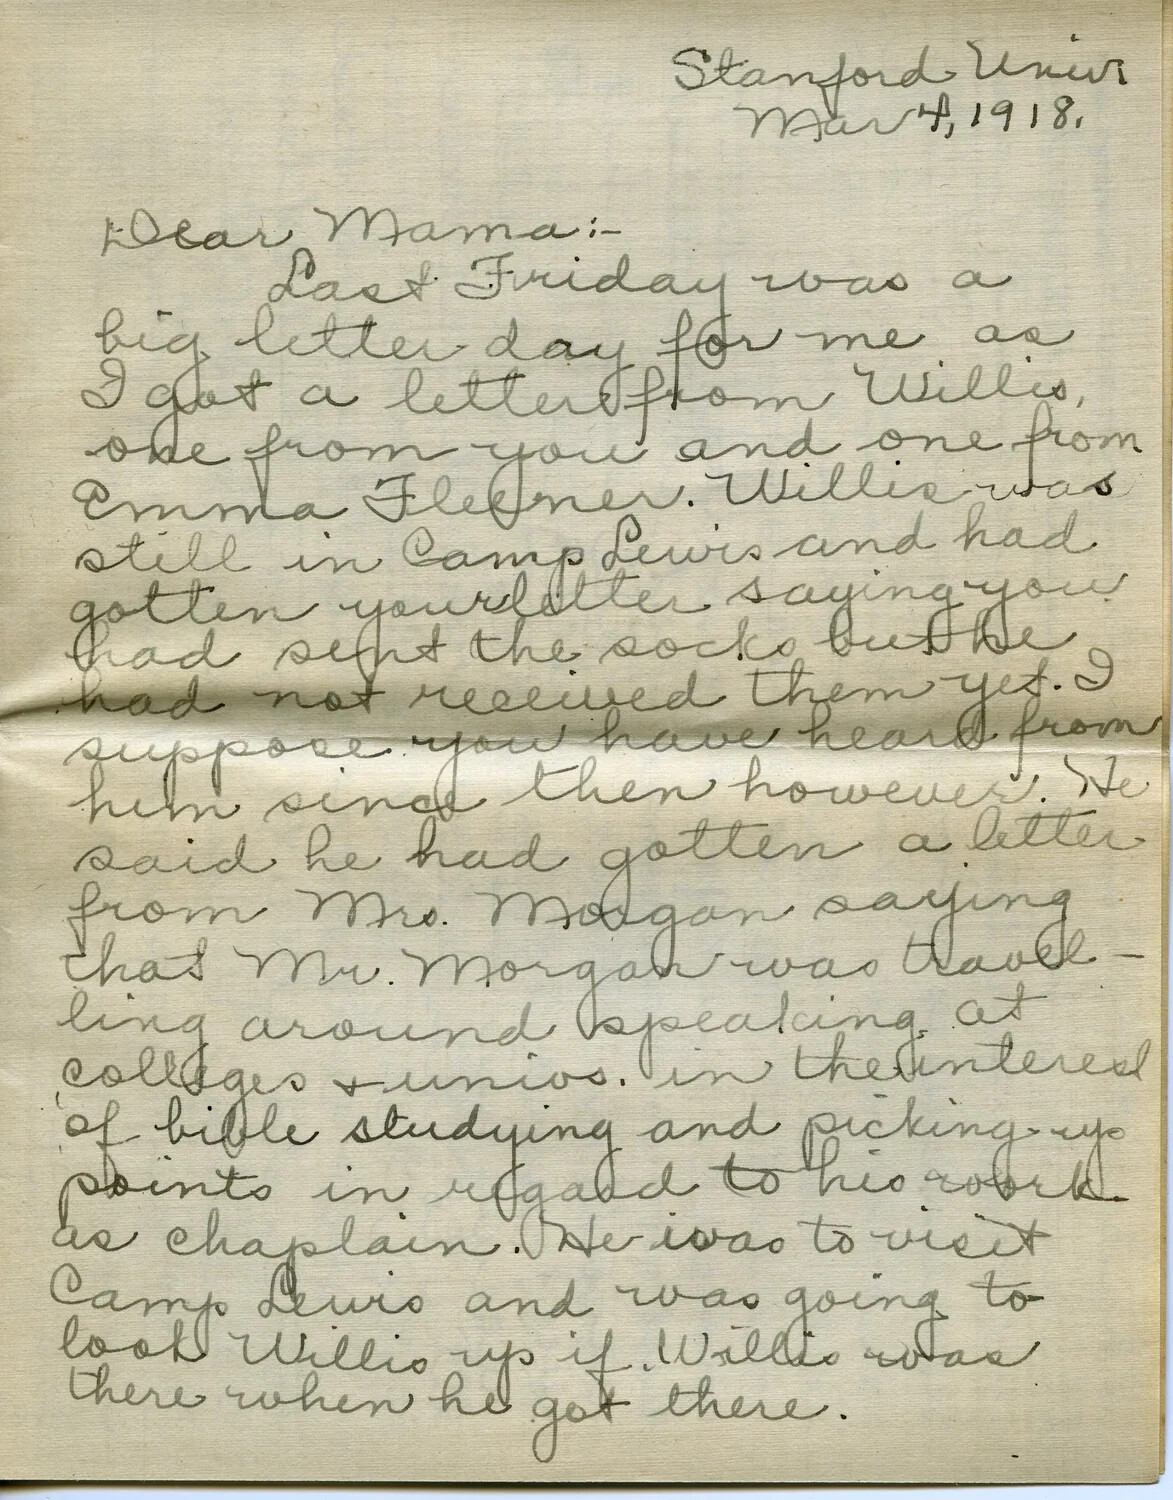 Stanford Univ.
Mar 4, 1918.
Dear Mama:-
Last Friday was a
big letter day for me as
I got a letter from Willis,
one from you and one from
Emma Fleener. Willis was
still in Camp Lewis and had
gotten your letter saying you
had sent the socks but he
had not received them yet. I
suppose you have heard from
him since then however. He
said he had gotten a letter
from Mrs. Morgan saying
that Mr. Morgan was travel-
ling around speaking at
colleges & univs. in the interest
of bible studying and picking up
points in regard to his work
as chaplain. He was to visit
Camp Lewis and was going to
look Willis up if Willis was
there when he got there.